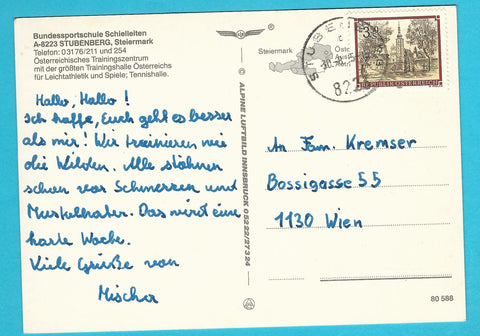 Bundessportschule Schielleiten
A-8223 STUBENBERG, Steiermark
Telefon: 03176/211 und 254
Österreichisches Trainingszentrum
mit der größten Trainingshalle Österreichs
für Leichtathletik und Spiele; Tennishalle.
Hallo, Hallo!
Ich hoffe, Euch geht es besser
als mir! Wir trainieren wie
die Wilden. Alle stöhnen
schon vor Schmerzen und
Muskelkater. Das wird eine
harte Woche.
Viele Grüße von
Mischa
© ALPINE LUFTBILD INNSBRUCK 05222/27324
Steiermark
REPUBLIK ÖSTERREICH
An Fam. Kremser
Bossigasse 55
1130 Wien
80 588